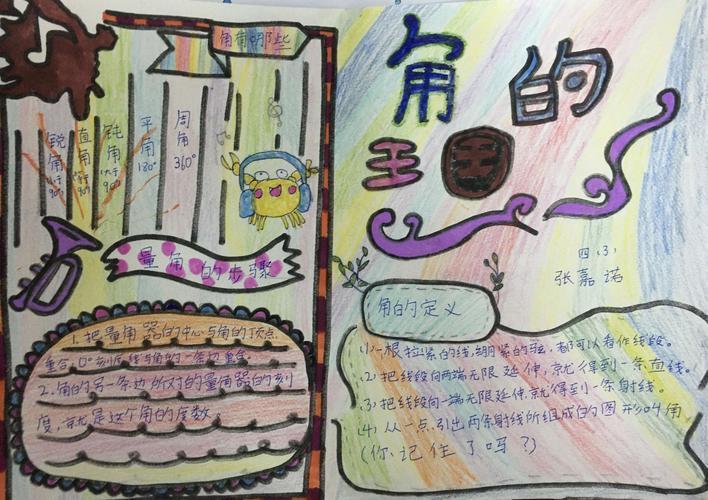 角角哪些
锐角(小于90°)
直角(等于90°)
钝角(大于90°)
平角180°
周角360°
量角的步骤
1.把量角器的中心与角的顶点
重合,0°刻度线与角的一条边重合。
2.角的另一条边所对的量角器的刻
度,就是这个角的度数。
角的
王国
四(3)
张嘉诺
角的定义
(1)一根拉紧的线,绷紧的弦,都可以看作线段。
(2)把线段向两端无限延伸,就得到一条直线。
(3)把线段向一端无限延伸,就得到一条射线。
(4)从一点引出两条射线所组成的图形叫角
(你记住了吗?)